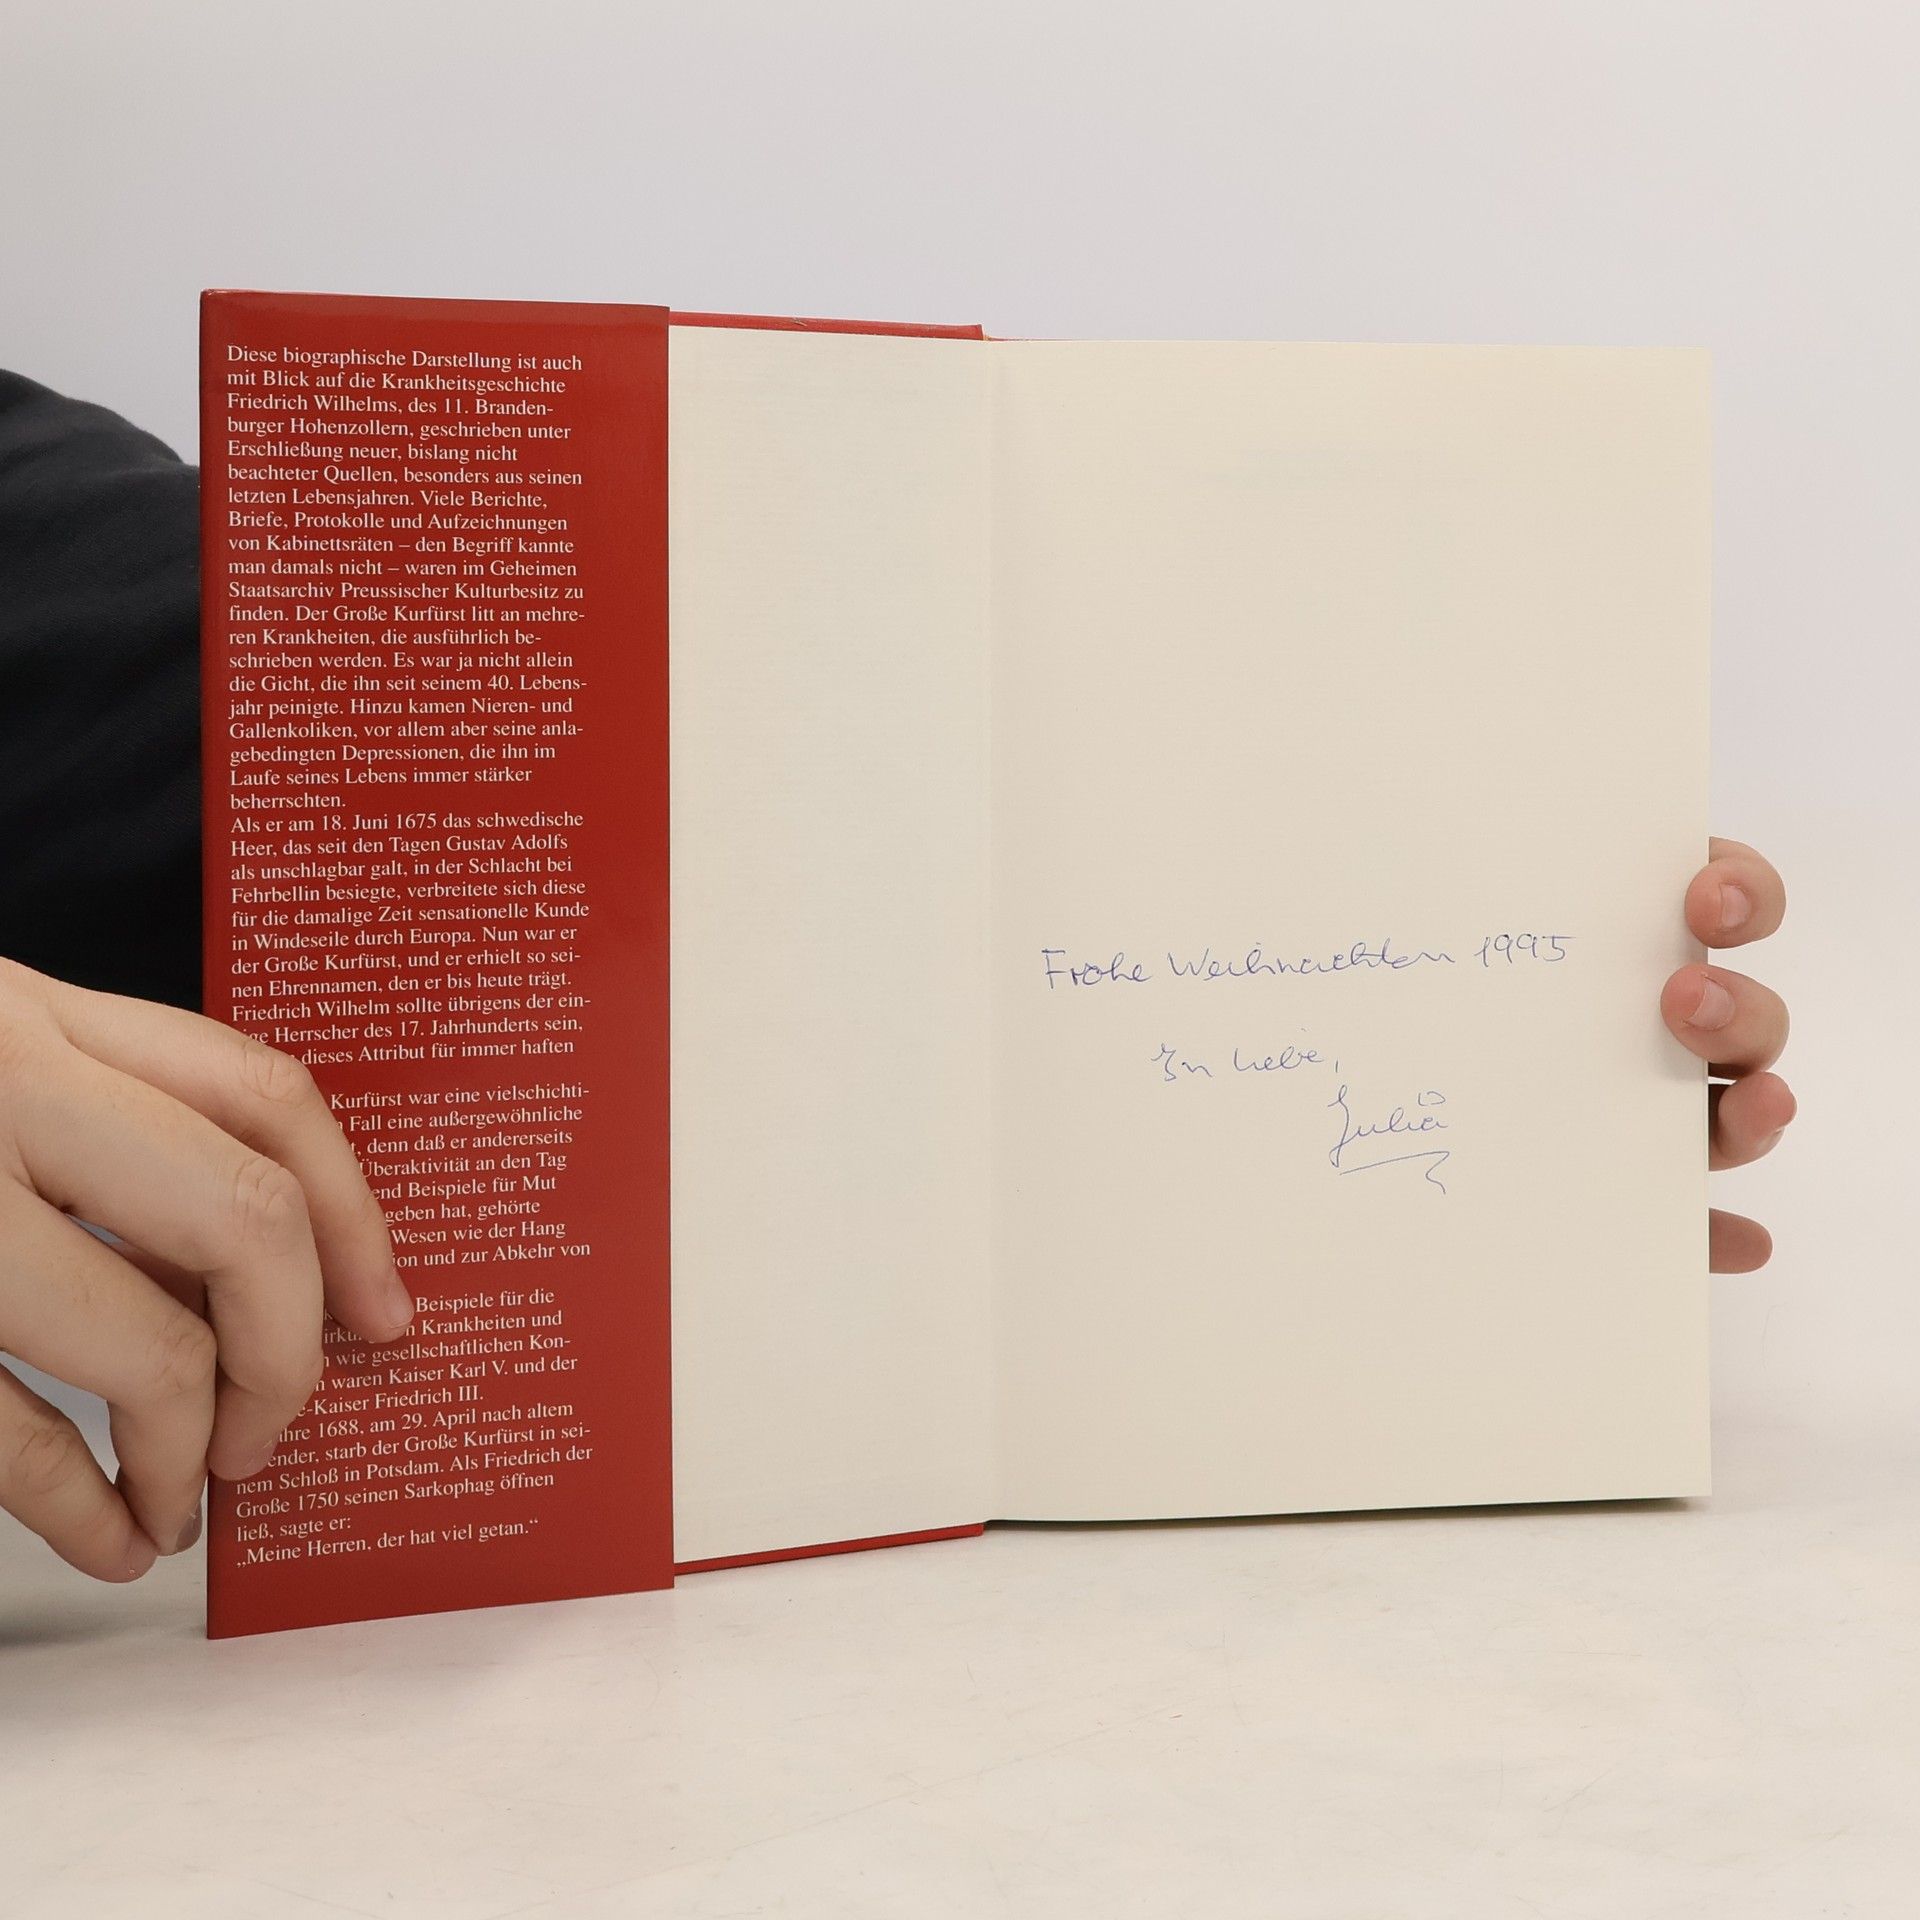 Diese biographische Darstellung ist auch
mit Blick auf die Krankheitsgeschichte
Friedrich Wilhelms, des 11. Branden-
burger Hohenzollern, geschrieben unter
Erschließung neuer, bislang nicht
beachteter Quellen, besonders aus seinen
letzten Lebensjahren. Viele Berichte,
Briefe, Protokolle und Aufzeichnungen
von Kabinettsräten – den Begriff kannte
man damals nicht – waren im Geheimen
Staatsarchiv Preussischer Kulturbesitz zu
finden. Der Große Kurfürst litt an mehre-
ren Krankheiten, die ausführlich be-
schrieben werden. Es war ja nicht allein
die Gicht, die ihn seit seinem 40. Lebens-
jahr peinigte. Hinzu kamen Nieren- und
Gallenkoliken, vor allem aber seine anla-
gebedingten Depressionen, die ihn im
Laufe seines Lebens immer stärker
beherrschten.
Als er am 18. Juni 1675 das schwedische
Heer, das seit den Tagen Gustav Adolfs
als unschlagbar galt, in der Schlacht bei
Fehrbellin besiegte, verbreitete sich diese
für die damalige Zeit sensationelle Kunde
in Windeseile durch Europa. Nun war er
der Große Kurfürst, und er erhielt so sei-
nen Ehrennamen, den er bis heute trägt.
Friedrich Wilhelm sollte übrigens der ein-
ge Herrscher des 17. Jahrhunderts sein,
dieses Attribut für immer haften
Kurfürst war eine vielschichti-
Fall eine außergewöhnliche
denn daß er andererseits
Überaktivität an den Tag
end Beispiele für Mut
geben hat, gehörte
Wesen wie der Hang
ion und zur Abkehr von
Beispiele für die
Krankheiten und
wie gesellschaftlichen Kon-
waren Kaiser Karl V. und der
e-Kaiser Friedrich III.
hre 1688, am 29. April nach altem
ender, starb der Große Kurfürst in sei-
nem Schloß in Potsdam. Als Friedrich der
Große 1750 seinen Sarkophag öffnen
ließ, sagte er:
„Meine Herren, der hat viel getan.“
Frohe Weihnachten 1995
In Liebe,
Julia